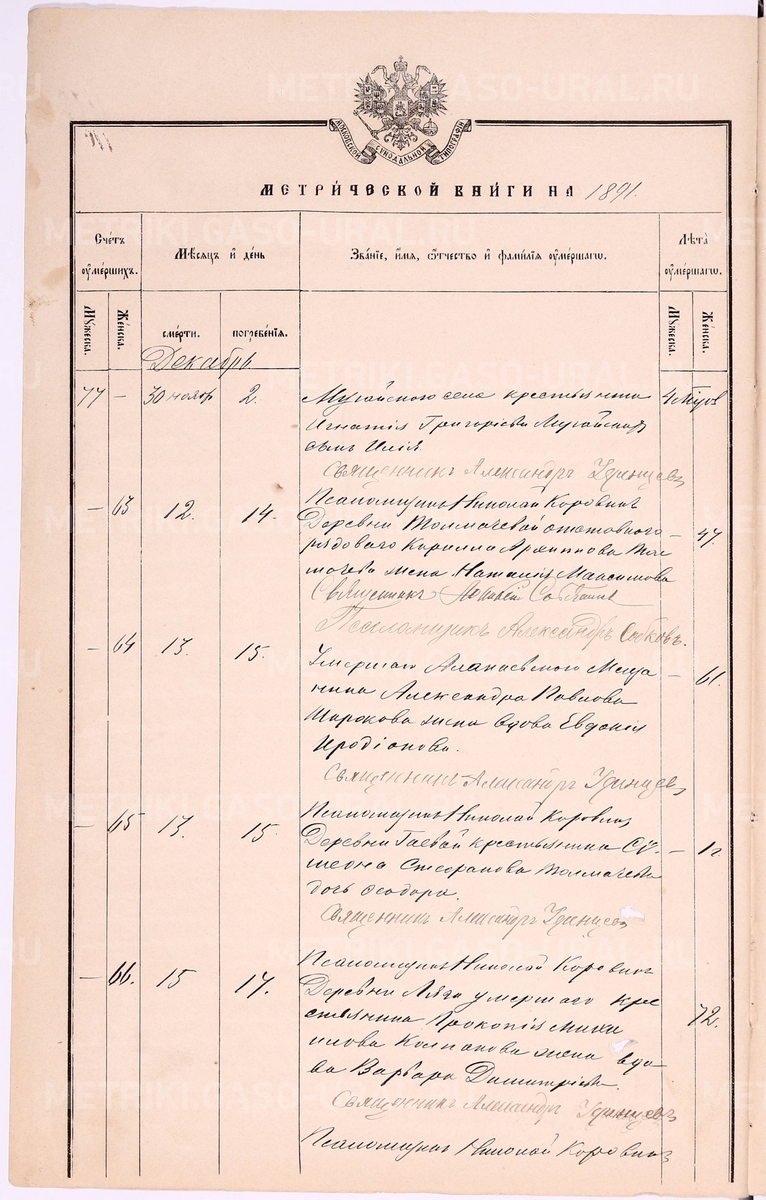 METRIKI.GASO-URAL.RU
МОСКОВСКОЙ СѴНОДАЛЬНОЙ ТИПОГРАФІИ
МЕТРИ́ЧЕСКОЙ КНИ́ГИ НА 1891.
Сче́тъ ᲂу҆ме́ршихъ.
Мѣ́сяцъ и҆ де́нь
Зва́нїе, и҆́мя, ѻ҆́тчество и҆ фами́лїя ᲂу҆ме́ршагѡ.
Лѣ́та ᲂу҆ме́ршагѡ.
Мꙋ́жеска.
Же́нска.
сме́рти.
погребе́нїя.
Мꙋ́жеска.
Же́нска.
Декабрь
77 – 30 нояб 2. Мугайского села крестьянина 4 мѣсяцов
Игнатія Григоріева Мугайскаго
сынъ Илія
Священникъ Александръ Удинцевъ
Псаломщикъ Николай Коровинъ
– 63 12. 14. Деревни Толмачевой отставного – 47.
рядового Кирилла Архиппова Тол
мачева жена Наталія Максимова
Священникъ
Псаломщикъ Александръ
– 64 13. 15. Умершаго Алапаевского Меща – 61.
нина Александра Павлова
Широкова жена вдова Евдокія
Иродіонова.
Священникъ Александръ Удинцевъ
Псаломщикъ Николай Коровинъ
– 65 13. 15. Деревни Гаевой крестьянина Сѵ –
меона Стефанова Толмачева
дочь Ѳеодора.
Священникъ Александръ Удинцевъ
Псаломщикъ Николай Коровинъ
– 66. 15 17. Деревни умершаго кре 72.
стьянина Прокопія Миха
илова Колпакова жена вдо
ва Варвара Димитріева.
Священникъ Александръ Удинцевъ
Псаломщикъ Николай Коровинъ